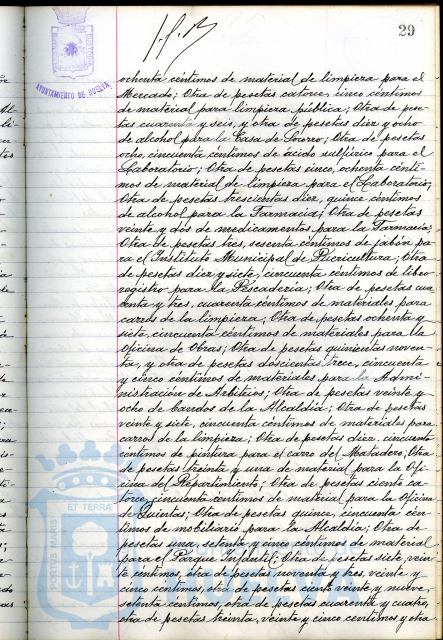 29
AYUNTAMIENTO DE HUELVA
ochenta céntimos de material de limpieza para el
Mercado; Otra de pesetas catorce, cinco céntimos
de material para limpieza pública; Otra de pese-
tas cuarenta y seis, y otra de pesetas diez y ocho
de alcohol para la Casa de Socorro; Otra de pesetas
ocho, cincuenta céntimos de ácido sulfúrico para el
Laboratorio; Otra de pesetas cinco, ochenta cénti-
mos de material de limpieza para el Laboratorio;
Otra de pesetas trescientas diez, quince céntimos
de alcohol para la Farmacia; Otra de pesetas
veinte y dos de medicamentos para la Farmacia;
Otra de pesetas tres, sesenta céntimos de jabón pa-
ra el Instituto Municipal de Puericultura; Otra
de pesetas diez y siete, cincuenta céntimos de libro
registro para la Pescadería; Otra de pesetas cua
renta y tres, cuarenta céntimos de materiales para
carros de la limpieza; Otra de pesetas ochenta y
siete, cincuenta céntimos de materiales para la
Oficina de Obras; Otra de pesetas quinientas noven-
ta, y otra de pesetas doscientas trece, cincuenta
y cinco céntimos de materiales para la Admi-
nistración de Arbitrios; Otra de pesetas veinte y
ocho de bandos de la Alcaldía; Otra de pesetas
veinte y siete, cincuenta céntimos de materiales para
carros de la limpieza; Otra de pesetas diez, cincuenta
céntimos de pintura para el carro del Matadero; Otra
de pesetas treinta y una de material para la Ofi-
cina del Repartimiento; Otra de pesetas ciento ca
torce, cincuenta céntimos de material para la Oficina
de Quintas; Otra de pesetas quince, cincuenta cén-
timos de mobiliario para la Alcaldía; Otra de
pesetas una, setenta y cinco céntimos de material
para el Parque Infantil; Otra de pesetas siete, vein
te céntimos, otra de pesetas noventa y tres, veinte y
cinco céntimos, otra de pesetas ciento veinte y nueve,
setenta céntimos, otra de pesetas cuarenta y cuatro,
otra de pesetas treinta, veinte y cinco céntimos y otra
PORTUS MARIS ET TERRÆ